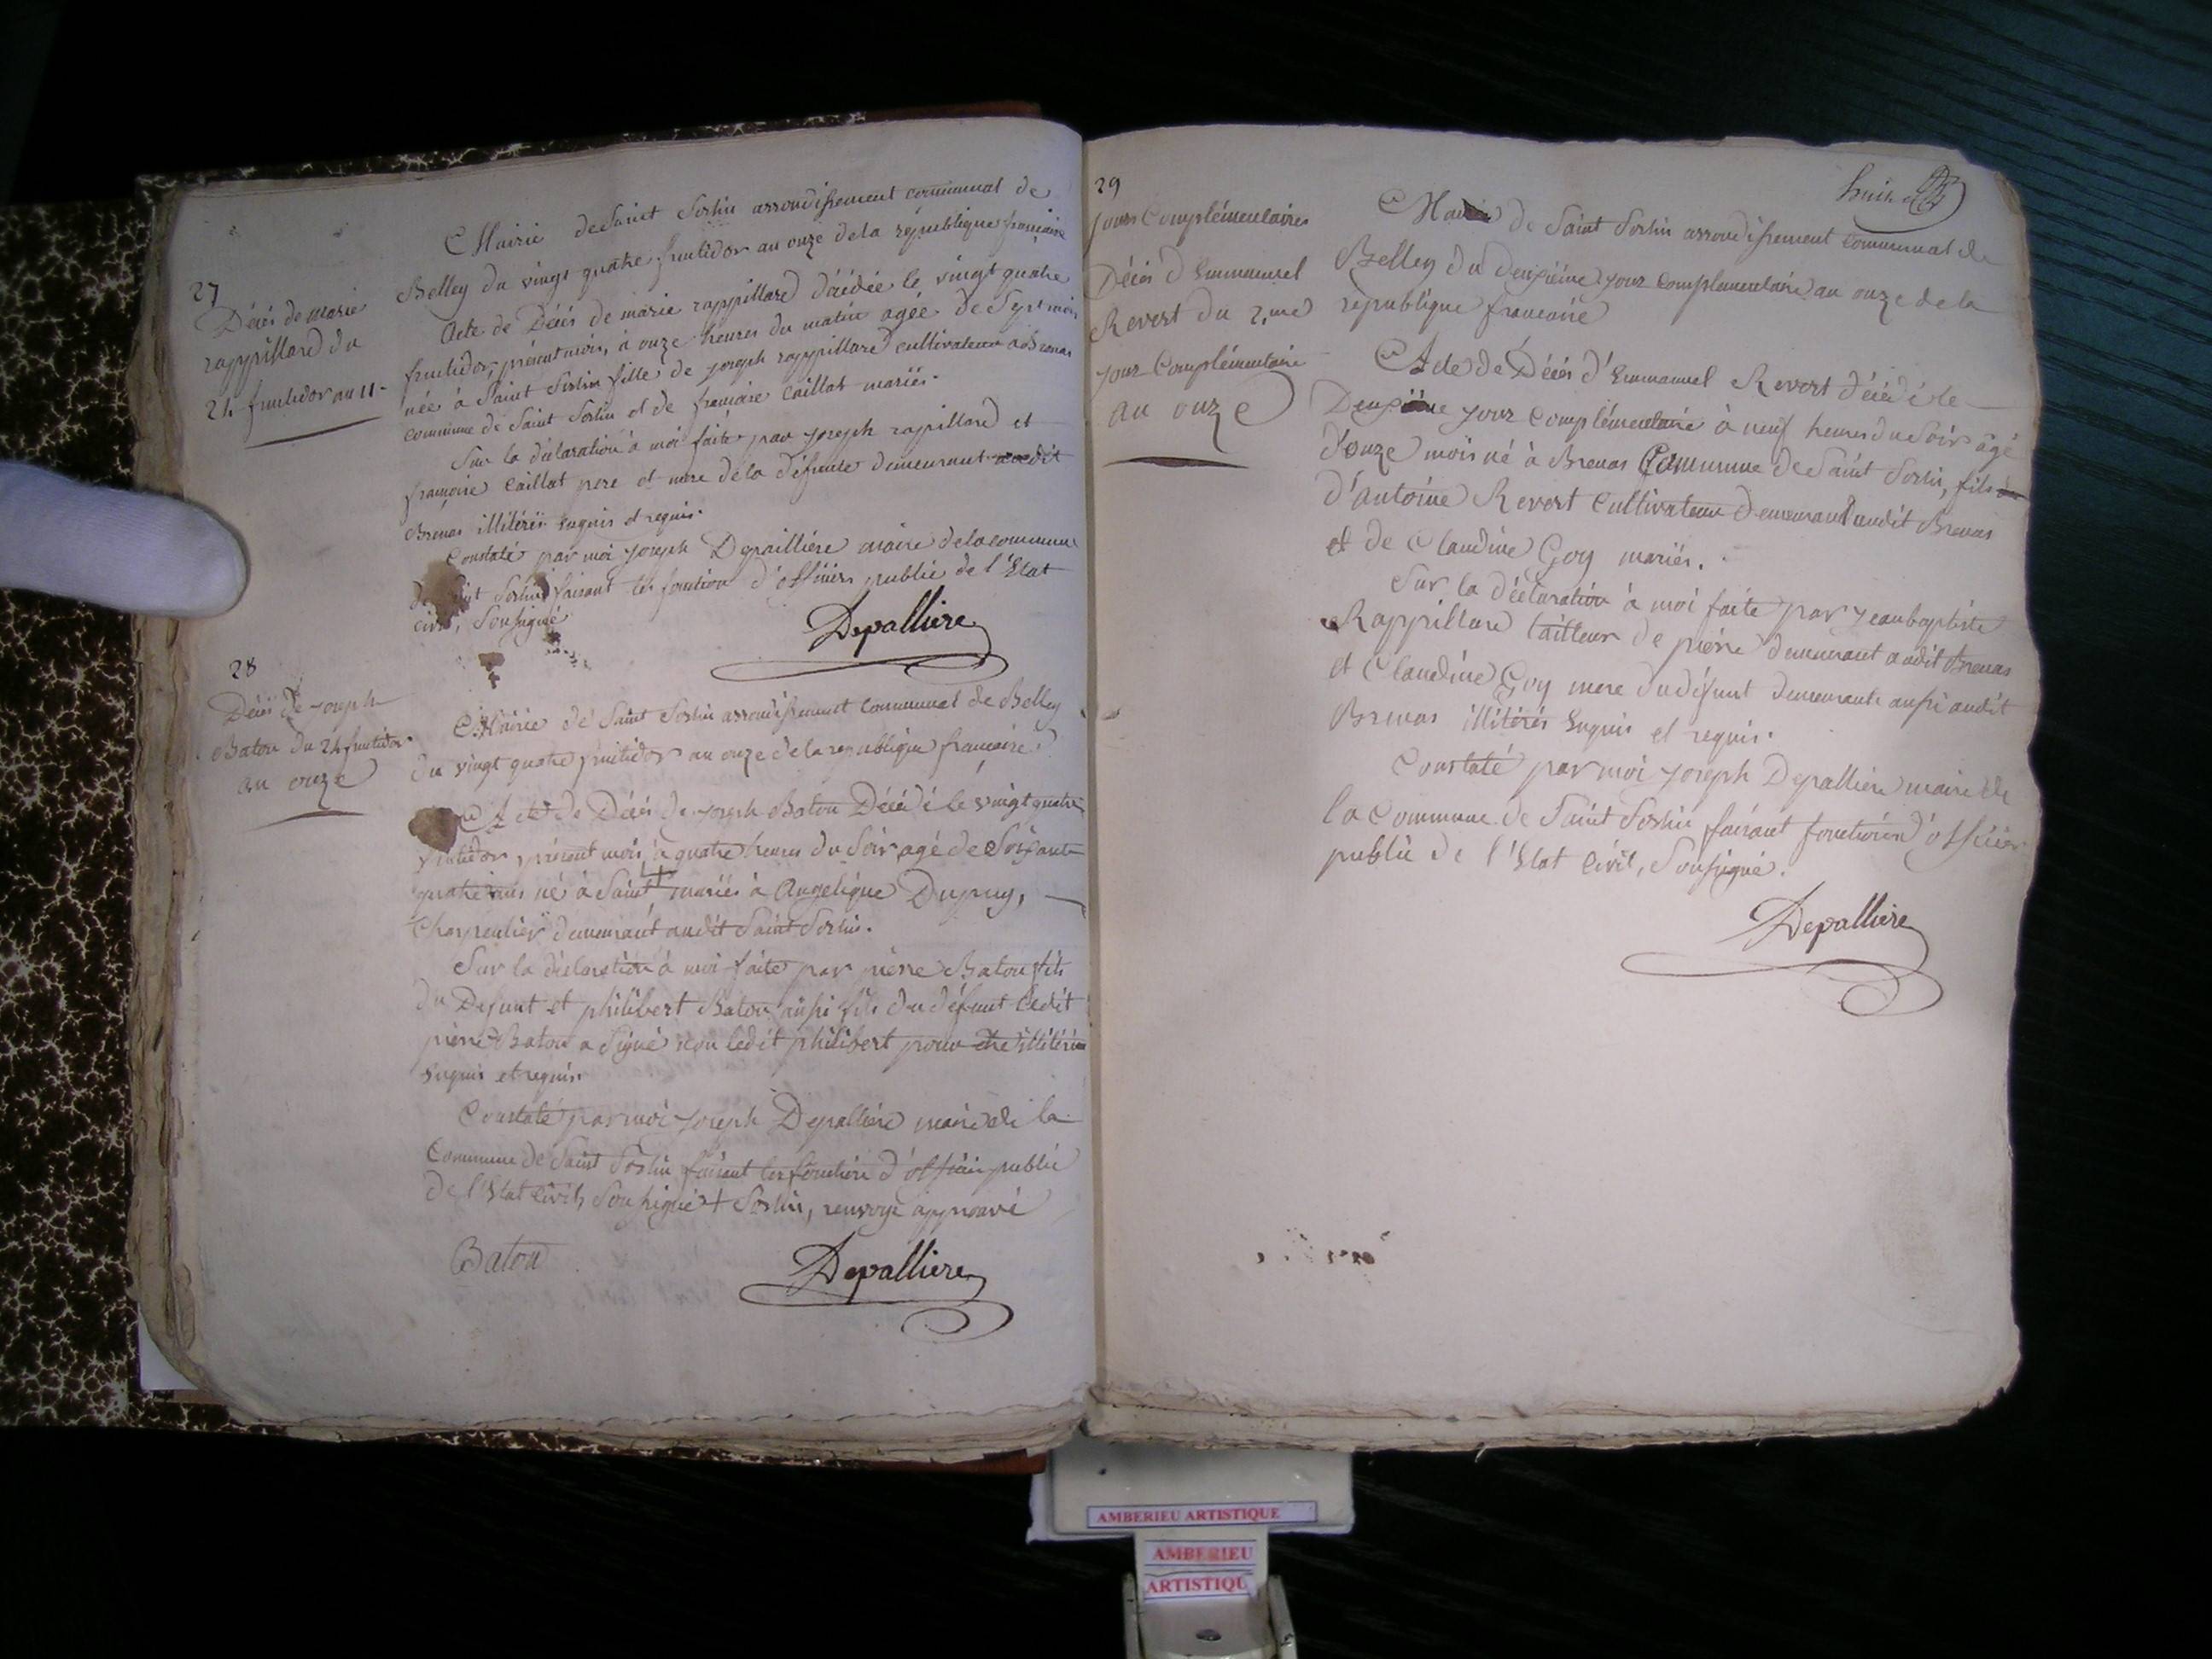 27
Décès de marie
rappillard du
24 fructidor an 11-
Mairie de Saint Sorlin arrondissement communal de
Belley du vingt quatre fructidor an onze de la république françoise
Acte de Décès de marie rappillard décédée le vingt quatre
fructidor, présent mois, à onze heures du matin agée de Sept mois
née à Saint Sorlin fille de joseph rappillard cultivateur à Brenas
commune de Saint Sorlin et de françoise Caillat mariés.
Sur la déclaration à moi faite par joseph rappillard et
françoise Caillat pere et mere de la défunte demeurant audit
Brenas illitérés enquis et requis.
Constaté par moi joseph Depaillière maire de la commune
de Saint Sorlin faisant les fonction d'officier public de l'Etat
civil, Soussigné
Depalliere
28
Décès de joseph
Baton du 24 fructidor
an onze
Mairie de Saint Sorlin arrondissement communal de Belley
du vingt quatre fructidor an onze de la republique françoise
Acte de Décès de joseph Baton Décédé le vingt quatre
fructidor, présent mois, à quatre heures du Soir agé de Soixante
quatre ans né à Saint + mariés à Angelique Dupuy,
Charpentier demeurant audit Saint Sorlin.
Sur la déclaration à moi faite par pierre Baton fils
du Defunt et philibert Baton aussi fils du défunt ledit
pierre Baton a Signé non ledit philibert pour être illitéré
enquis et requis
Constaté par moi joseph Depallière maire de la
Commune de Saint Sorlin faisant les fonction d'officier public
de l'Etat Civil, Soussigné + Sorlin, renvoye approuvé
Baton
Depalliere
huit
29
jours Complémentaires
Décès d'Emmanuel
Revert du 2,me
jour Complémentaire
an onze
Mairie de Saint Sorlin arrondissement communal de
Belley du deuxième jour complementaire an onze de la
république françoise
Acte de Décès d'Emmanuel Revert décédé le
Deuxième jour complémentaire à neuf heures du Soir âgé
d'onze mois né à Brenas Commune de Saint Sorlin, fils
d'antoine Revert Cultivateur demeurant audit Brenas
et de Claudine Goy mariés.
Sur la déclaration à moi faite par jean baptiste
Rappillard tailleur de pierre demeurant audit Brenas
et Claudine Goy mere du défunt demeurante aussi audit
Brenas illitérés Enquis et requis.
Constaté par moi joseph Depallière maire de
la Commune de Saint Sorlin faisant fonction d'officier
public de l'Etat Civil, Soussigné.
Depalliere
AMBERIEU ARTISTIQUE
AMBERIEU
ARTISTIQU